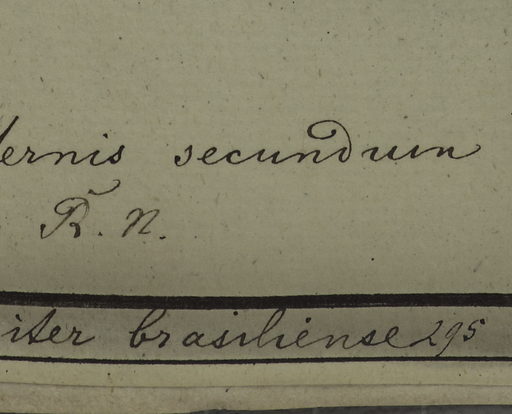 ernis secundum
R. n.
iter brasiliense 295